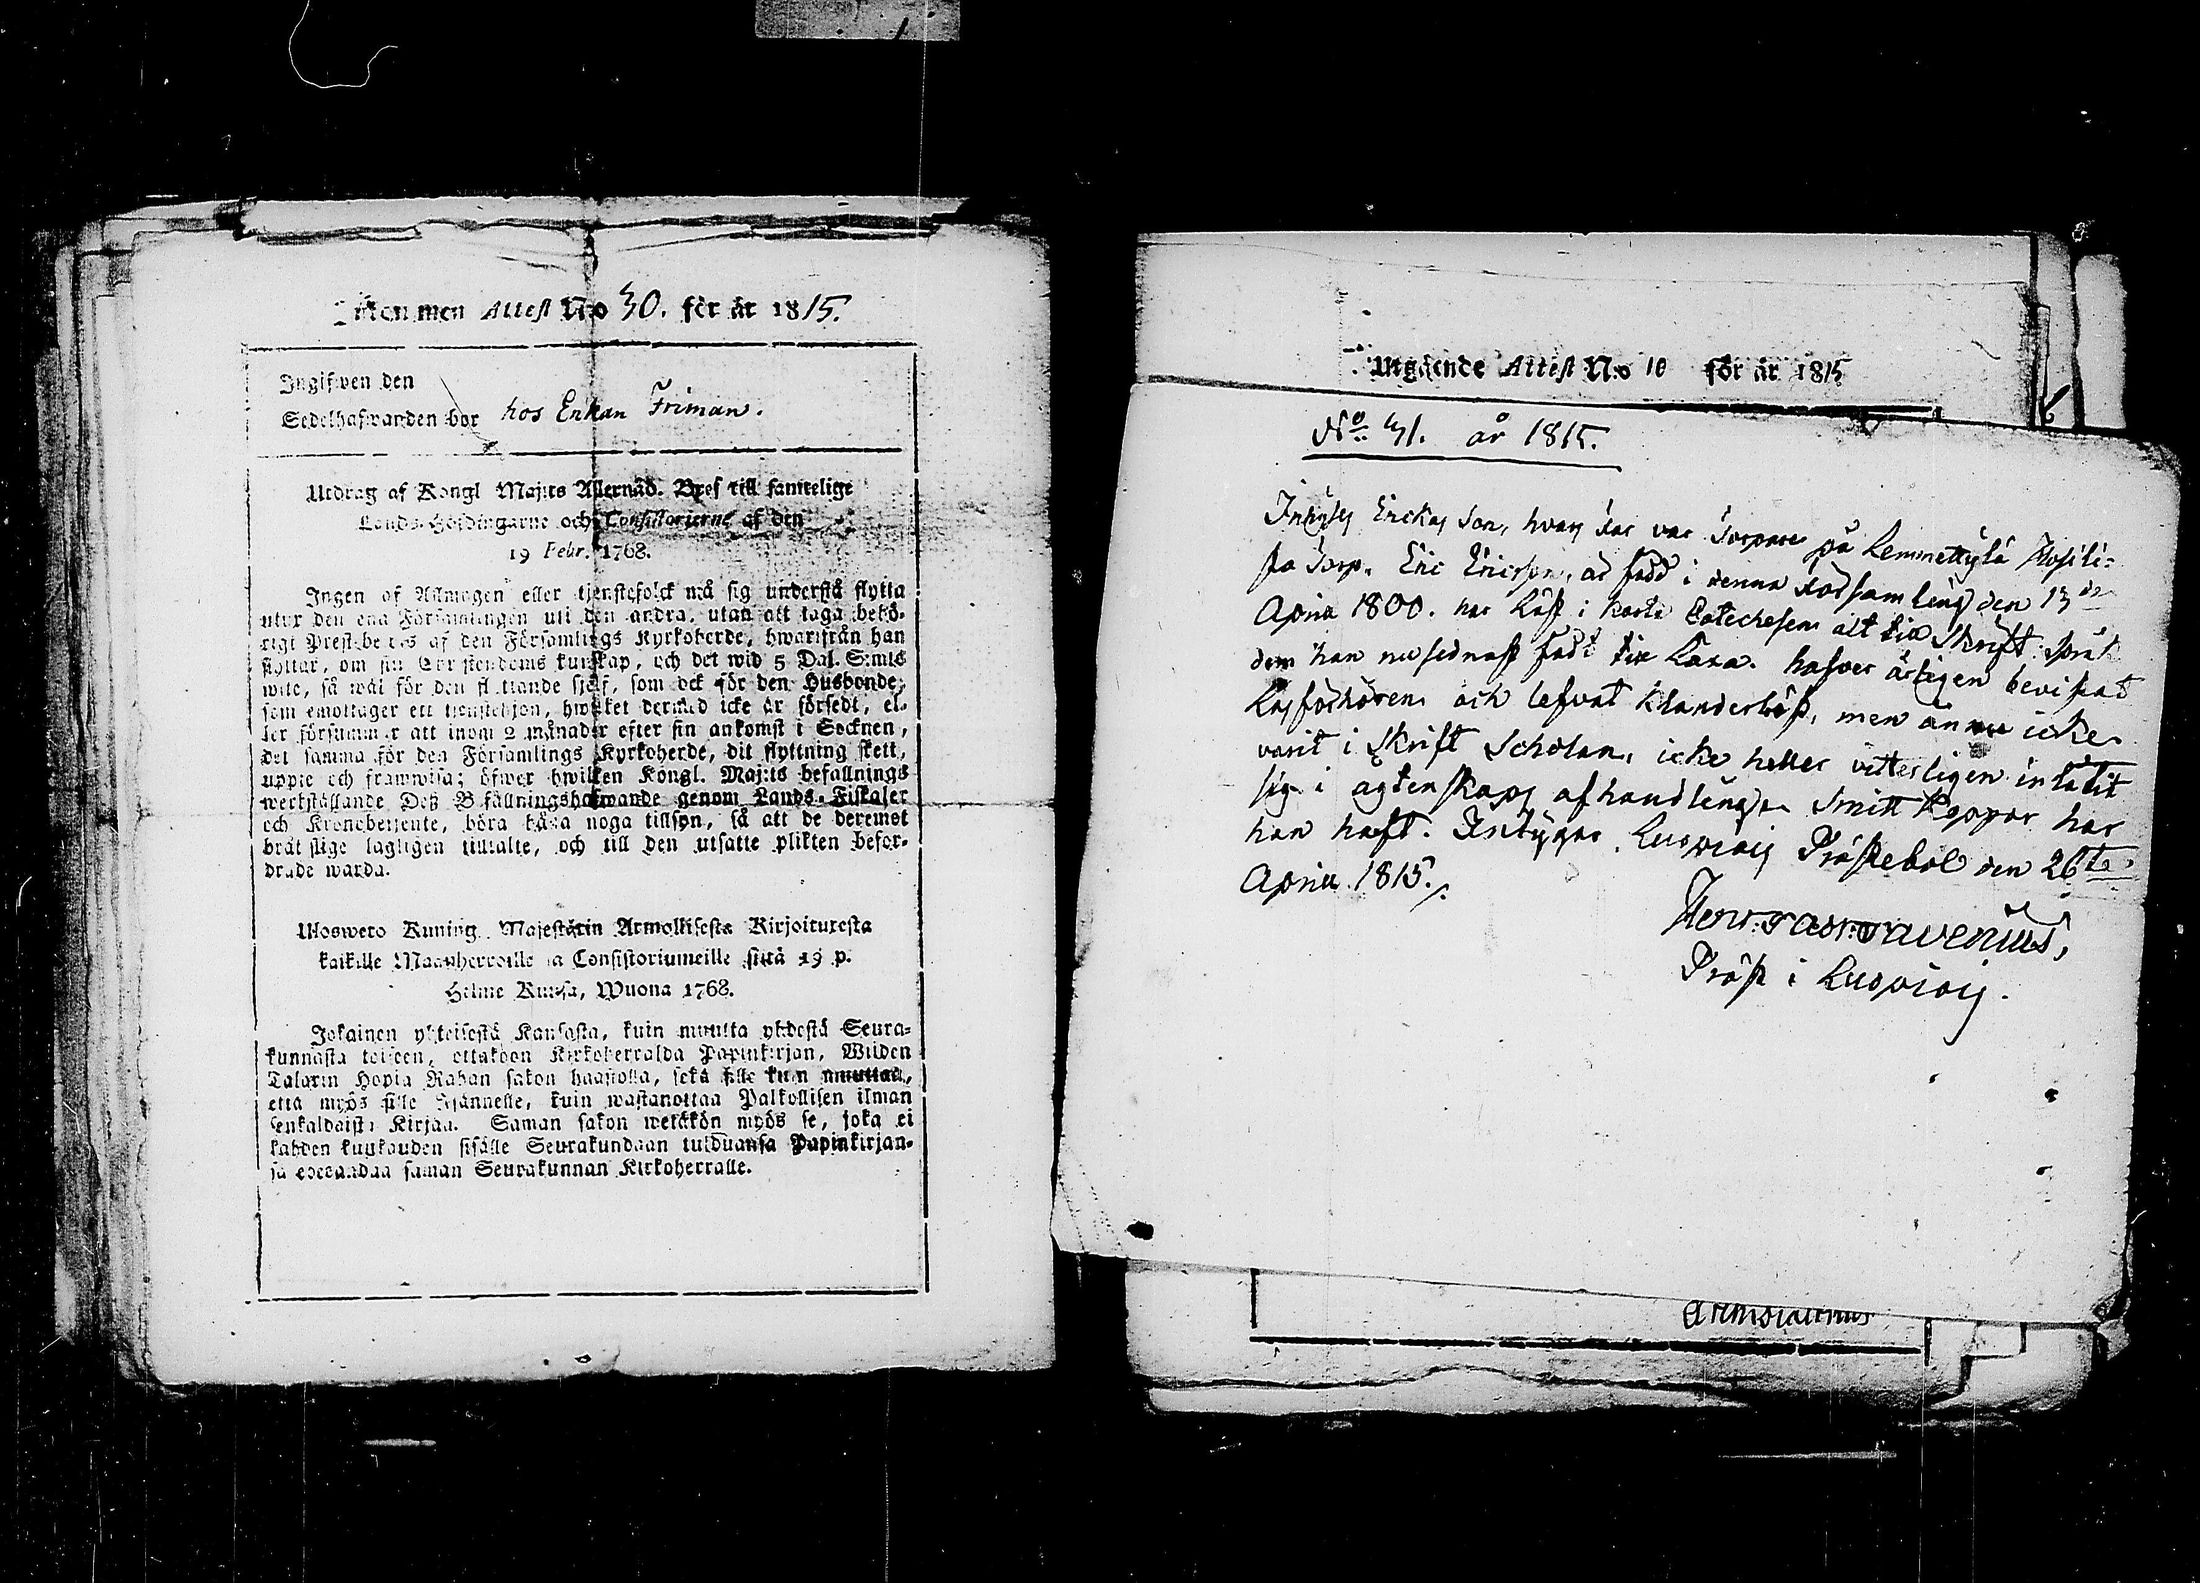 Attest No 30. för år 1815.
Ingifwen den
Sedelhafwanden bor hos Enkan Friman.
Utdrag af Kongl Maj:ts Allernåd. Bref till samtelige
Lands-Höfdingarne och Consistorierne af den
19 Febr. 1768.
Ingen af Allmogen eller tjenstefolck må sig understå flytta
utur den ena Församlingen uti den andra, utan att taga behö-
rigt af den Församlings Kyrkoherde, hwarifrån han
flyttar, om sin kunskap, och det wid 5 Dal. S:mts
wite, så wäl för den flyttande sjelf, som ock för den Husbonde,
som emottager ett tjenstehjon, hwilket dermed icke är försedt, el-
ler försummar att inom 2 månader efter sin ankomst i Socknen,
det samma för den Församlings Kyrkoherde, dit flyttning skett,
uppte och framwisa; öfwer hwilken Kongl. Maj:ts befallnings
werkställande Deß Befallningshafwande genom Lands-Fiskaler
och Kronobetjente, böra hafwa noga tillsyn, så att de deremot
brätslige lagligen tilltalte, och till den utsatte plikten befor-
drade warda.
Ulosweto Kuning. Majestätin Armollisesta Kirjoituxesta
kaikille Maanherroille ja Consistoriumeille siitä 19 p.
Helme Kuusa, Wuona 1768.
Jokainen yhteisestä Kansasta, kuin muutta yhdestä Seura-
kunnasta toiseen, ottakoon Kirkoherralda Papinkirjan, Wiiden
Talarin Hopia Rahan sakon haastolla, sekä sille kuin muuttaa,
että myös sille Isännelle, kuin wastanottaa Palkollisen ilman
senkaldaista Kirjaa. Saman sakon wetäkön myös se, joka ei
kahden kuukauden sisälle Seurakundaan tulduansa Papinkirjan-
sa edesandaa saman Seurakunnan Kirkoherralle.
Utgående Attest No 10 för år 1815
No 31. år 1815.
Ericks Son, hvars far var Torpare på Lemmettylä
Torp. Eric Ericsson, är född i denna Församling den 13de
April 1800. har Läst i korta Catechesen alt till Skrift språk
dem han nu sednast fådt till Läxa. hafver årligen bevistat
Läsförhören och lefvat klanderlöst, men ännu icke
varit i Skrift Scholan, icke heller vitterligen inlåtit
sig i ägtenskaps afhandling. Smitt Koppor har
han haft. Intygar Prästebol den 26te
April 1815.
Präst i